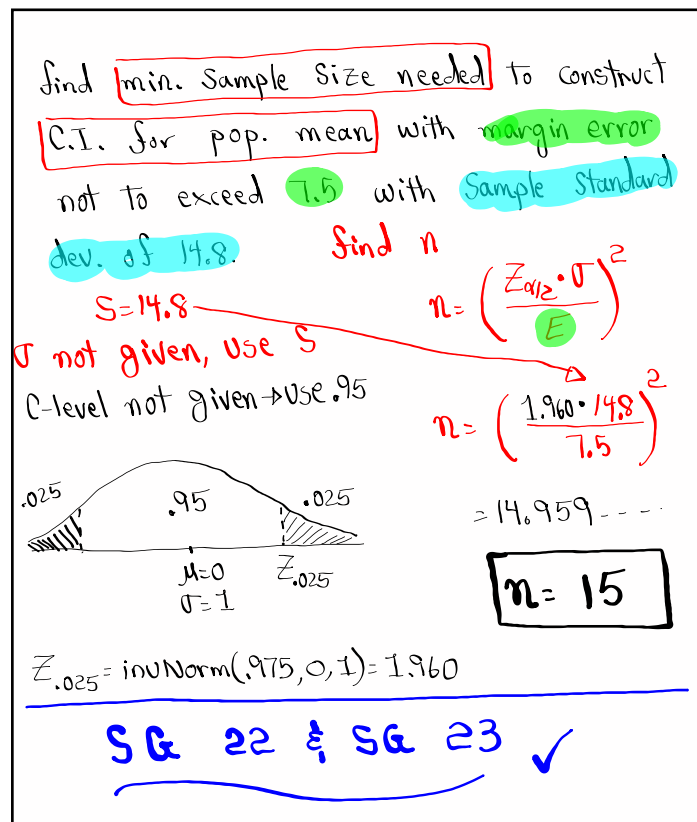 find min. Sample Size needed to construct
C.I. for pop. mean with margin error
not to exceed 7.5 with Sample Standard
dev. of 14.8. find n
S=14.8
n= (Zα/2 · σ / E)²
σ not given, use S
C-level not given → use .95
n= (1.960 · 14.8 / 7.5)²
.025 .95 .025
= 14.959 - - - -
μ=0 Z.025
σ=1
n= 15
Z.025 = invNorm(.975,0,1)=1.960
SG 22 & SG 23 ✓